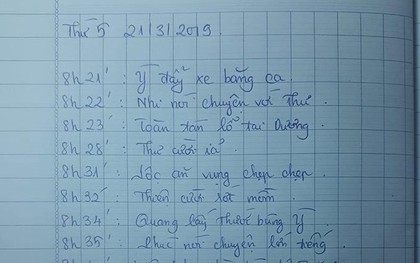 Thứ 5 21/3/2019.
8h 21' : Ý đẩy xe băng ca
8h 22' : Nhi nói chuyện với Thư.
8h 23' : Toàn tán lổ tai Dương
8h 28' : Thư cười ỉa
8h 31' : Lộc ăn vụng chẹp chẹp.
8h 32' : Thiên cười rớt mềm
8h 34' : Quang lấy thước búng Ý
8h 35' : nói chuyện lớn tiếng